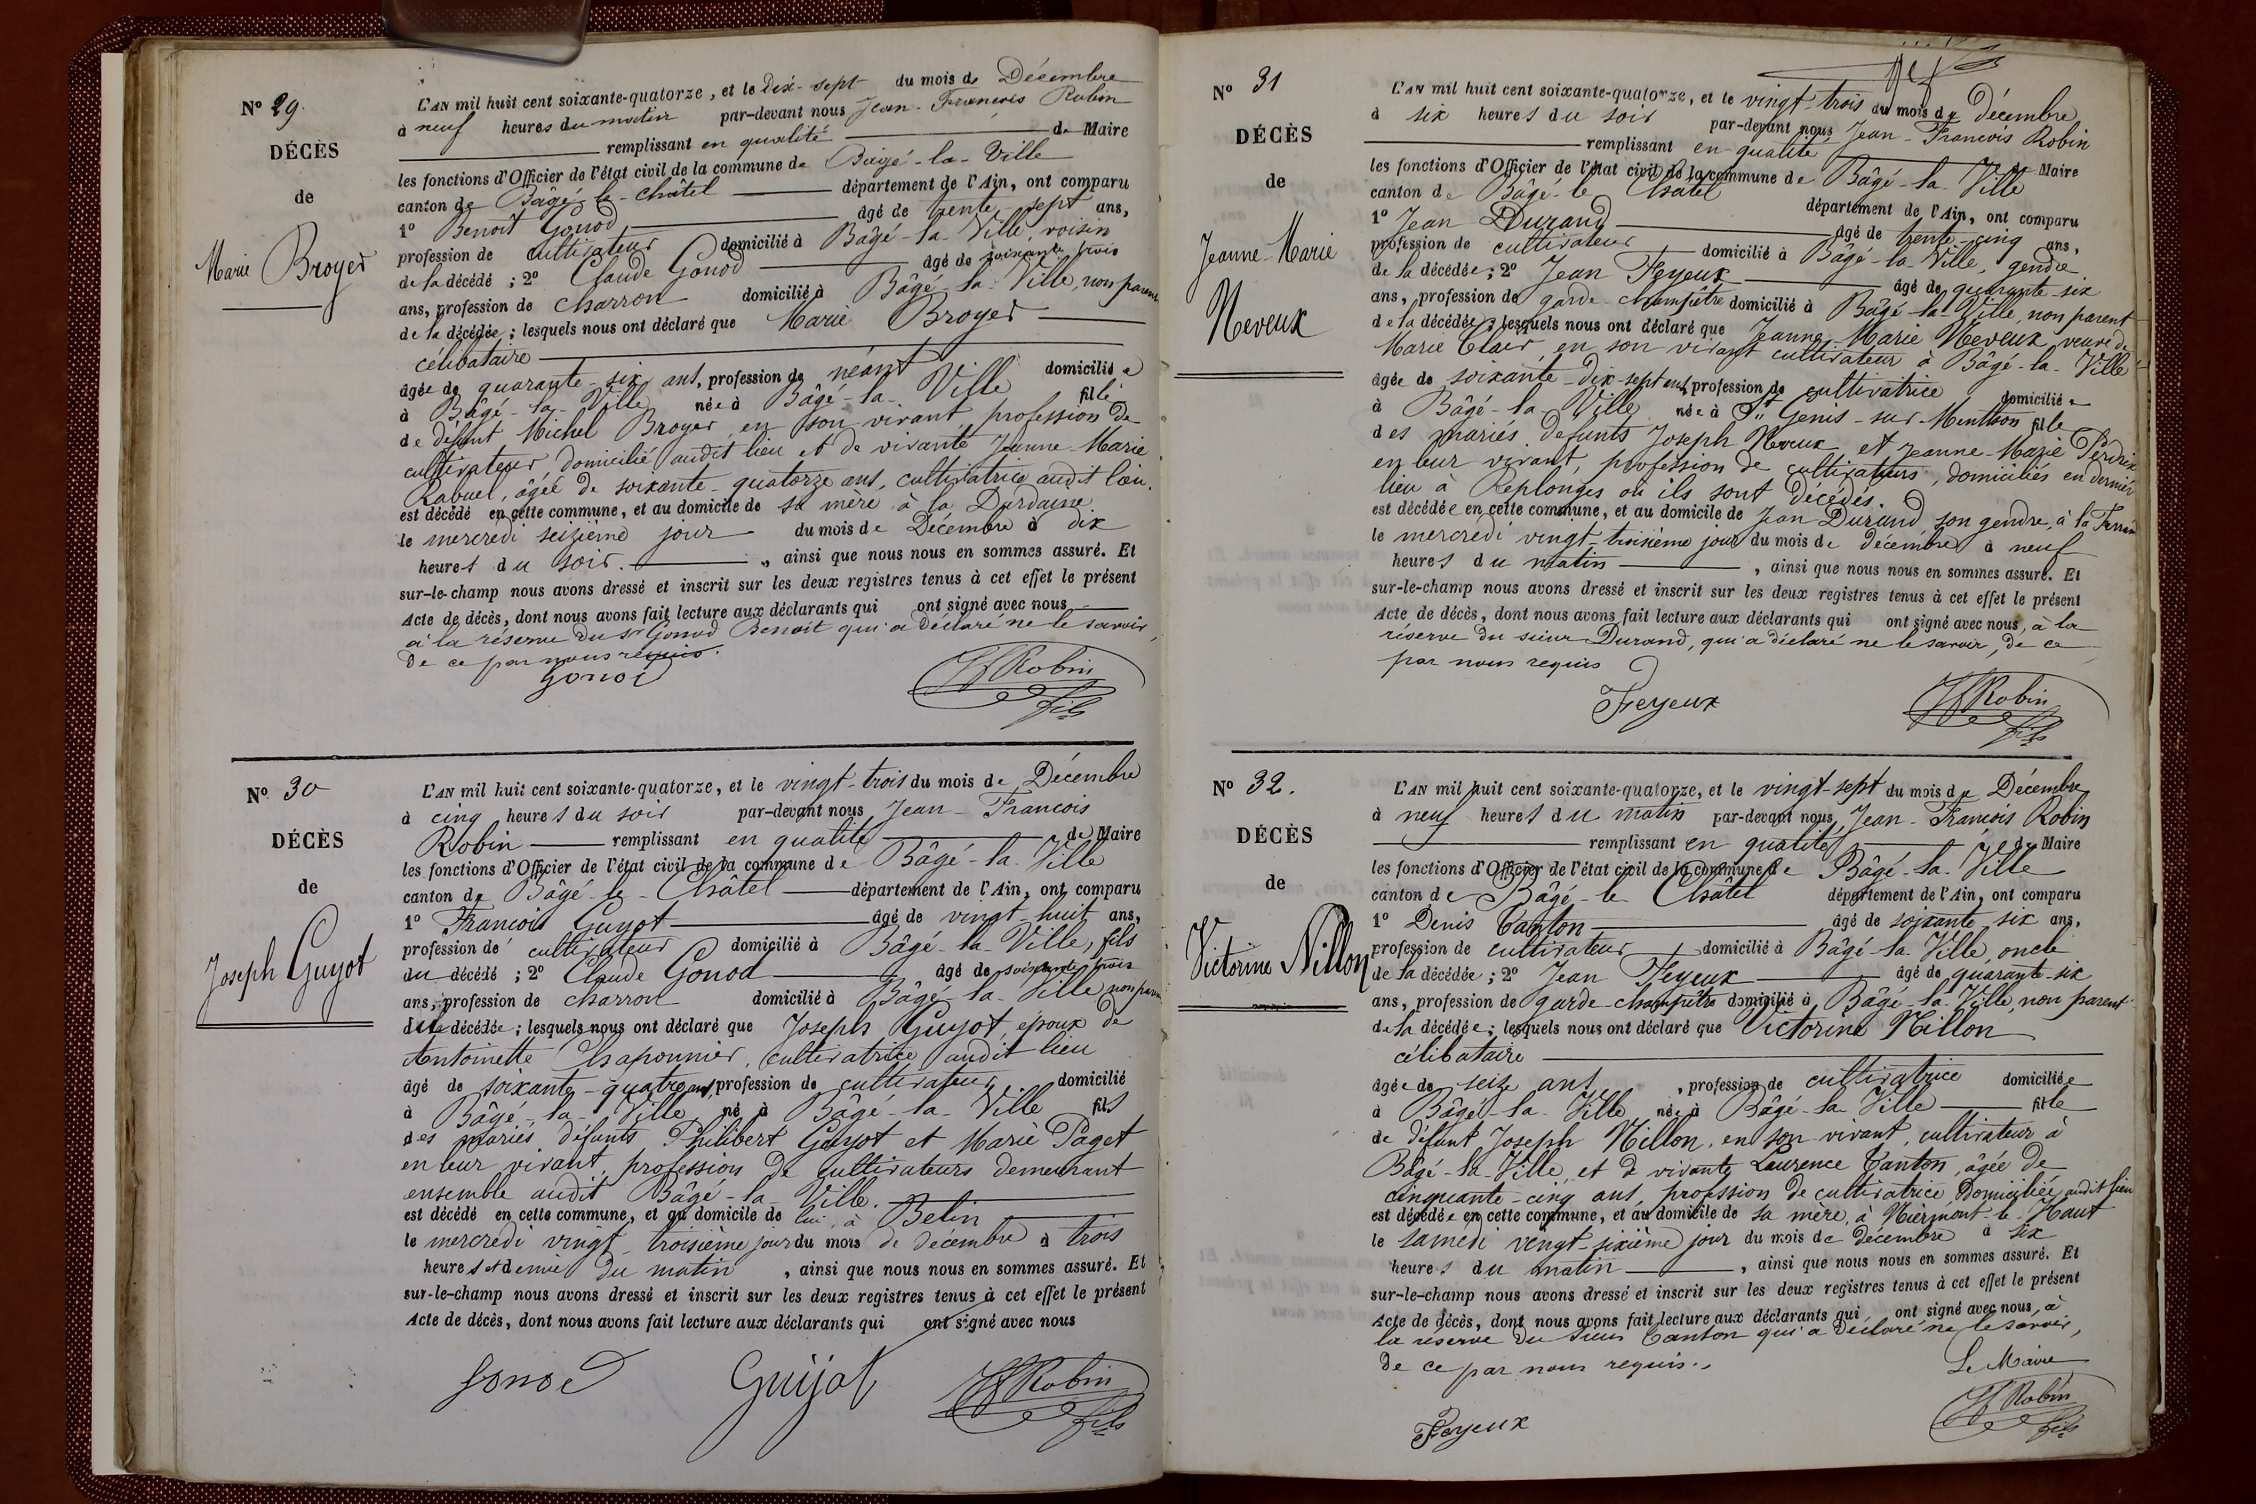 N° 29.
DÉCÈS
de
Marie Broyer
L'AN mil huit cent soixante-quatorze, et le Dix-sept du mois de Décembre
à neuf heures du matin par-devant nous Jean-François Robin
remplissant en qualité de Maire
les fonctions d'Officier de l'état civil de la commune de Bâgé-la-Ville
canton de Bâgé-le-Châtel département de l'Ain, ont comparu
1° Benoît Gonod âgé de trente-sept ans,
profession de cultivateur domicilié à Bâgé-la-Ville, voisin
de la décédé ; 2° Claude Gonod âgé de soixante trois
ans, profession de charron domicilié à Bâgé-la-Ville, non parent
de la décédée ; lesquels nous ont déclaré que Marie Broyer
célibataire
âgée de quarante-six ans, profession de néant domiciliée
à Bâgé-la-Ville née à Bâgé-la-Ville fille
de défunt Michel Broyer en son vivant profession de
cultivateur, domicilié audit lieu et de vivante Jeanne-Marie
Rabuel, âgée de soixante-quatorze ans, cultivatrice audit lieu.
est décédé en cette commune, et au domicile de sa mère à la Durdaine
le mercredi seizième jour du mois de Décembre à dix
heures du soir. , ainsi que nous nous en sommes assuré. Et
sur-le-champ nous avons dressé et inscrit sur les deux registres tenus à cet effet le présent
Acte de décès, dont nous avons fait lecture aux déclarants qui ont signé avec nous
à la réserve du sr Gonod Benoit qui a déclaré ne le savoir,
de ce par nous requis.
Gonod JfRobin fils
N° 30
DÉCÈS
de
Joseph Guyot
L'AN mil huit cent soixante-quatorze, et le vingt-trois du mois de Décembre
à cinq heures du soir par-devant nous Jean-François
Robin remplissant en qualité de Maire
les fonctions d'Officier de l'état civil de la commune de Bâgé-la-Ville
canton de Bâgé-le-Châtel département de l'Ain, ont comparu
1° François Guyot âgé de vingt-huit ans,
profession de cultivateur domicilié à Bâgé-la-Ville, fils
du décédé ; 2° Claude Gonod âgé de soixante trois
ans, profession de charron domicilié à Bâgé-la-Ville non parent
décédée ; lesquels nous ont déclaré que Joseph Guyot, époux de
Antoinette Chaponnier, cultivatrice audit lieu
âgé de soixante-quatre ans, profession de cultivateur domicilié
à Bâgé-la-Ville né à Bâgé-la-Ville fils
des mariés défunts Philibert Guyot et Marie Paget
en leur vivant, profession de cultivateurs demeurant
ensemble audit Bâgé-la-Ville.
est décédé en cette commune, et au domicile de lui à Belin
le mercredi vingt-troisième jour du mois de décembre à trois
heures et demie du matin , ainsi que nous nous en sommes assuré. Et
sur-le-champ nous avons dressé et inscrit sur les deux registres tenus à cet effet le présent
Acte de décès, dont nous avons fait lecture aux déclarants qui ont signé avec nous
Gonod Guijot JfRobin fils
N° 31
DÉCÈS
de
Jeanne-Marie
Neveux
L'AN mil huit cent soixante-quatorze, et le vingt-trois du mois de Décembre
à six heures du soir par-devant nous Jean-François Robin
remplissant en qualité de Maire
les fonctions d'Officier de l'état civil de la commune de Bâgé-la-Ville
canton de Bâgé-le-Châtel département de l'Ain, ont comparu
1° Jean Durand âgé de trente-cinq ans,
profession de cultivateur domicilié à Bâgé-la-Ville, gendre
de la décédée ; 2° Jean Feyeux âgé de quarante-six
ans, profession de garde-champêtre domicilié à Bâgé-la-Ville, non parent
de la décédée ; lesquels nous ont déclaré que Jeanne-Marie Neveux veuve de
Marie Clair en son vivant cultivateur à Bâgé-la-Ville
âgée de soixante-dix-sept ans, profession de cultivatrice domiciliée
à Bâgé-la-Ville née à St Genis-sur-Menthon fille
des mariés défunts Joseph Neveux et Jeanne-Marie Perdrix
en leur vivant, profession de cultivateurs, domiciliés en dernier
lieu à Replonges où ils sont décédés.
est décédée en cette commune, et au domicile de Jean Durand son gendre, à la
le mercredi vingt-troisième jour du mois de décembre à neuf
heures du matin , ainsi que nous nous en sommes assuré. Et
sur-le-champ nous avons dressé et inscrit sur les deux registres tenus à cet effet le présent
Acte de décès, dont nous avons fait lecture aux déclarants qui ont signé avec nous, à la
réserve du sieur Durand, qui a déclaré ne le savoir, de ce
par nous requis
Feyeux JfRobin fils
N° 32.
DÉCÈS
de
Victorine Nillon
L'AN mil huit cent soixante-quatorze, et le vingt-sept du mois de Décembre
à neuf heures du matin par-devant nous Jean-François Robin
remplissant en qualité de Maire
les fonctions d'Officier de l'état civil de la commune de Bâgé-la-Ville
canton de Bâgé-le-Châtel département de l'Ain, ont comparu
1° Denis Canton âgé de soixante-six ans,
profession de cultivateur domicilié à Bâgé-la-Ville, oncle
de la décédée ; 2° Jean Feyeux âgé de quarante-six
ans, profession de garde-champêtre domicilié à Bâgé-la-Ville, non parent
de la décédée ; lesquels nous ont déclaré que Victorine Nillon
célibataire
âgée de seize ans , profession de cultivatrice domiciliée
à Bâgé-la-Ville née à Bâgé-la-Ville fille
de défunt Joseph Nillon, en son vivant, cultivateur à
Bâgé-la-Ville, et de vivante Laurence Canton, âgée de
cinquante-cinq ans, profession de cultivatrice domiciliée audit lieu
est décédée en cette commune, et au domicile de sa mère, à Niermont-le-Haut
le samedi vingt-sixième jour du mois de décembre à six
heures du matin , ainsi que nous nous en sommes assuré. Et
sur-le-champ nous avons dressé et inscrit sur les deux registres tenus à cet effet le présent
Acte de décès, dont nous avons fait lecture aux déclarants qui ont signé avec nous, à
la réserve du sieur Canton qui a déclaré ne le savoir,
de ce par nous requis.
Le Maire
Feyeux JfRobin fils